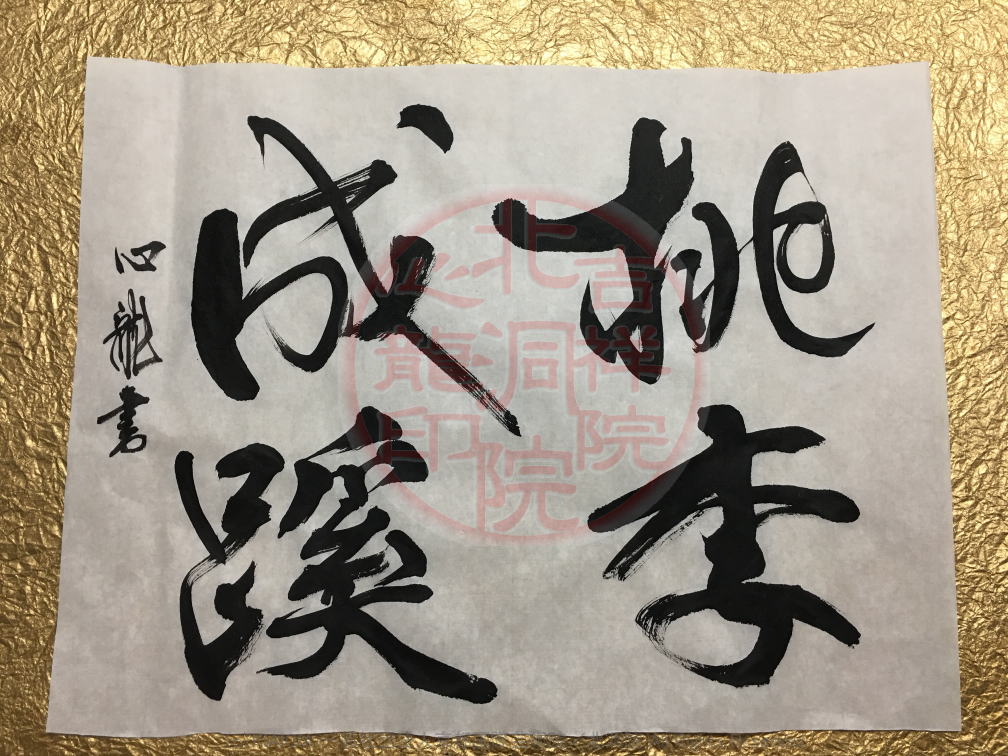 桃李
成蹊
心龍書
吉祥院
北洞院
心龍印